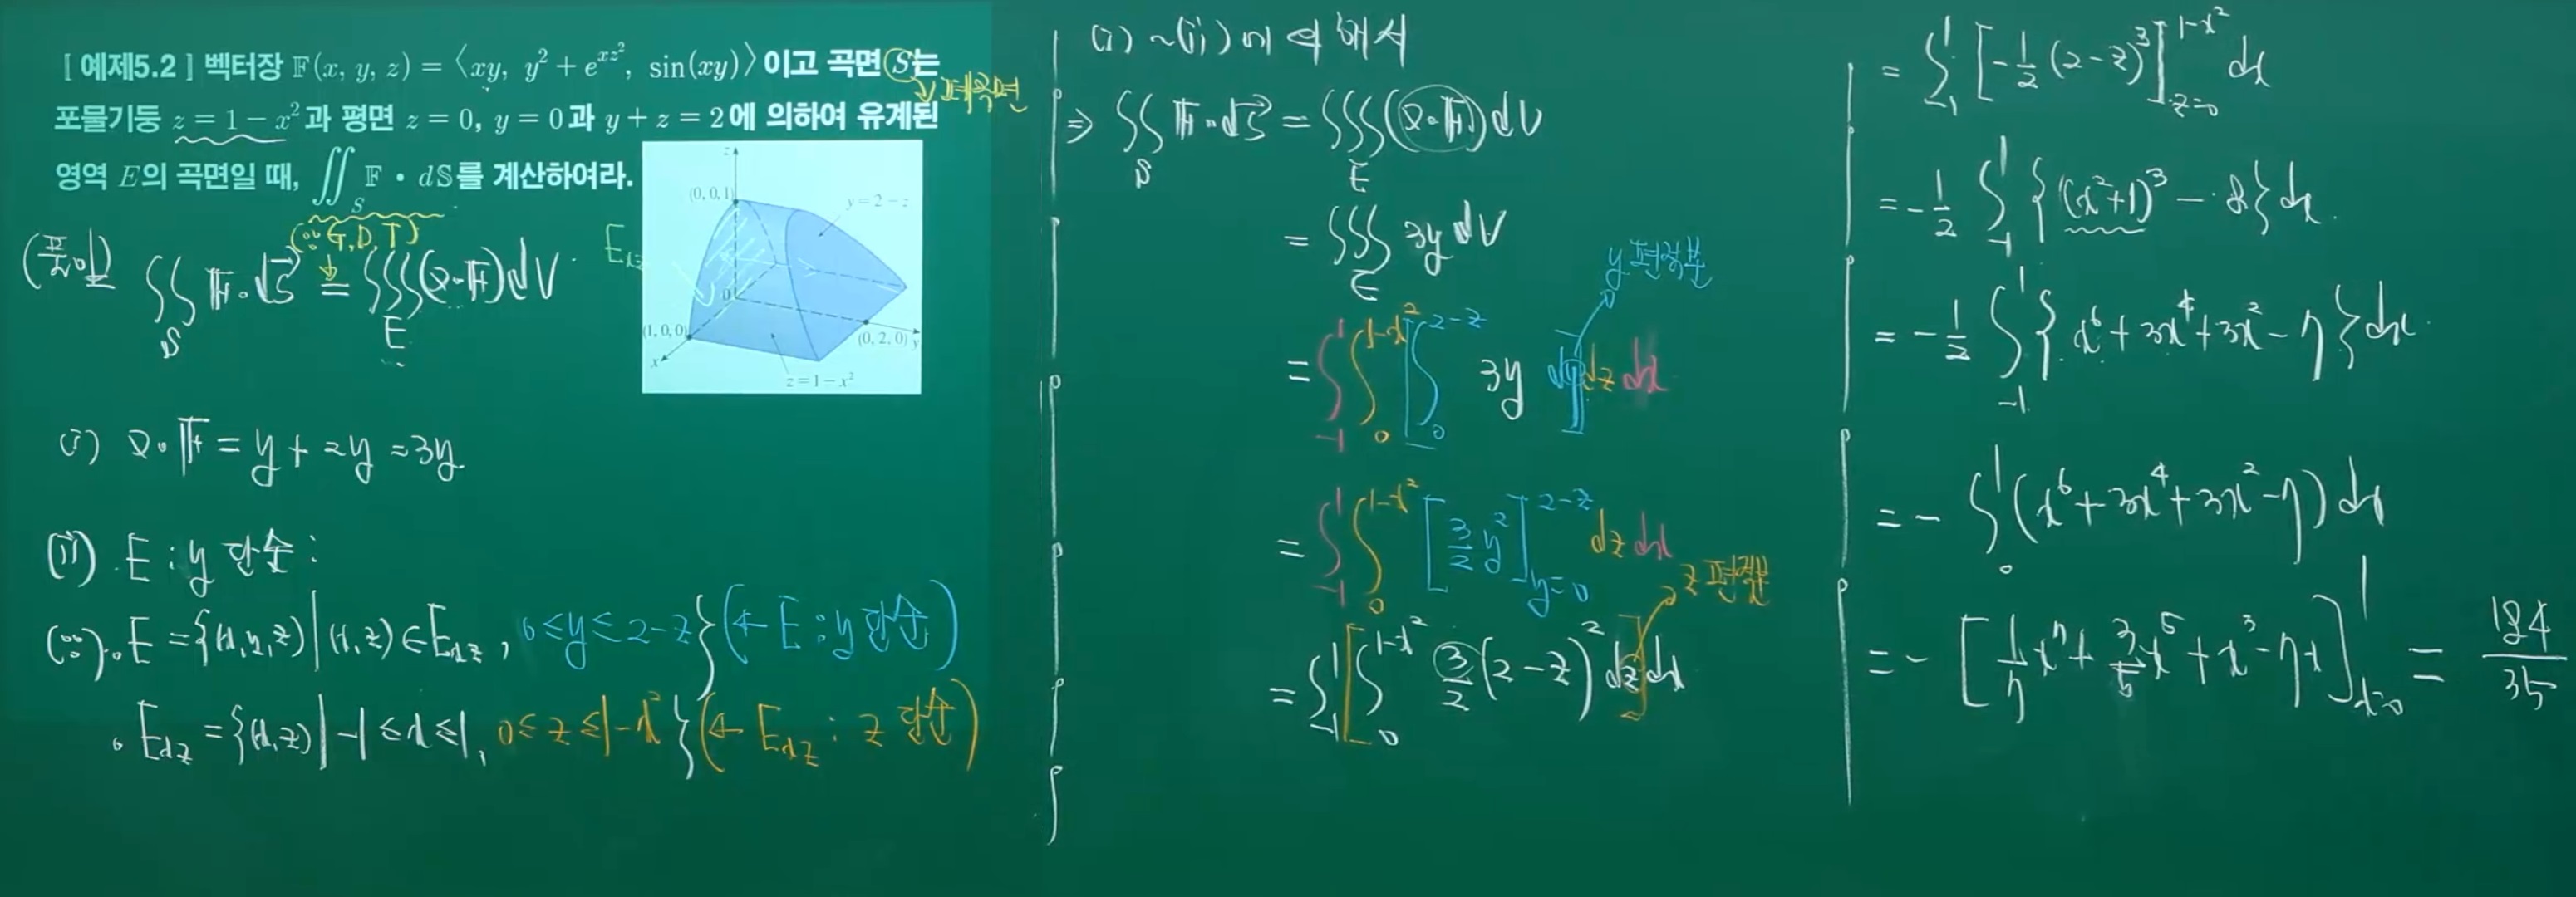 [ 예제5.2 ] 벡터장 𝔽(x, y, z) = ⟨xy, y² + e^{xz²}, sin(xy)⟩이고 곡면 S는
폐곡면
포물기둥 z = 1 − x²과 평면 z = 0, y = 0과 y + z = 2에 의하여 유계된
영역 E의 곡면일 때, ∬_S 𝔽 • d𝕊를 계산하여라.
z
(0, 0, 1)
y = 2 − z
0
(1, 0, 0)
(0, 2, 0) y
x
z = 1 − x²
E_xz
(∵ G.D.T)
(풀이) ∬_S 𝔽·dS⃗ = ∭_E (∇·𝔽) dV
(i) ∇·𝔽 = y + 2y = 3y
(ii) E : y 단순 :
(∵) · E = {(x,y,z) | (x,z) ∈ E_xz, 0 ≤ y ≤ 2−z} (← E : y 단순)
· E_xz = {(x,z) | −1 ≤ x ≤ 1, 0 ≤ z ≤ 1−x²} (← E_xz : z 단순)
(i) ~ (ii)에 의해서
⇒ ∬_S 𝔽·dS⃗ = ∭_E (∇·𝔽) dV
= ∭_E 3y dV
y 편적분
= ∫_{-1}^{1} ∫_0^{1-x²} [∫_0^{2-z} 3y dy] dz dx
= ∫_{-1}^{1} ∫_0^{1-x²} [3/2 y²]_{y=0}^{2-z} dz dx
z 편적분
= ∫_{-1}^{1} [∫_0^{1-x²} 3/2 (2−z)² dz] dx
= ∫_{-1}^{1} [−1/2 (2−z)³]_{z=0}^{1-x²} dx
= −1/2 ∫_{-1}^{1} {(x²+1)³ − 8} dx
= −1/2 ∫_{-1}^{1} {x⁶ + 3x⁴ + 3x² − 7} dx
= − ∫_0^1 (x⁶ + 3x⁴ + 3x² − 7) dx
= − [1/7 x⁷ + 3/5 x⁵ + x³ − 7x]_{x=0}^{1} = 184/35